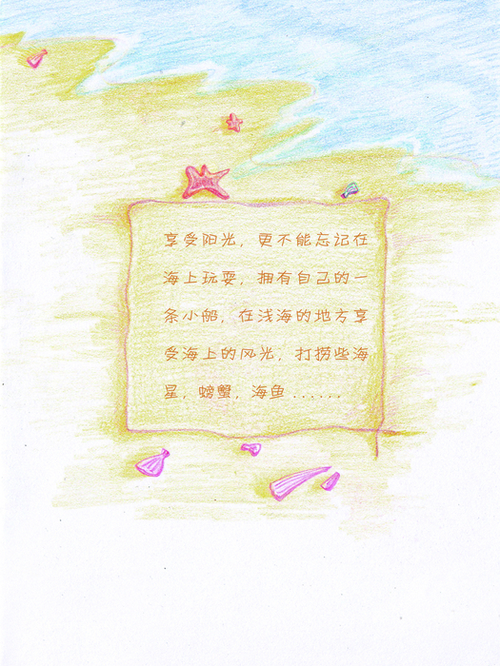 享受阳光，更不能忘记在
海上玩耍，拥有自己的一
条小船，在浅海的地方享
受海上的风光，打捞些海
星，螃蟹，海鱼......